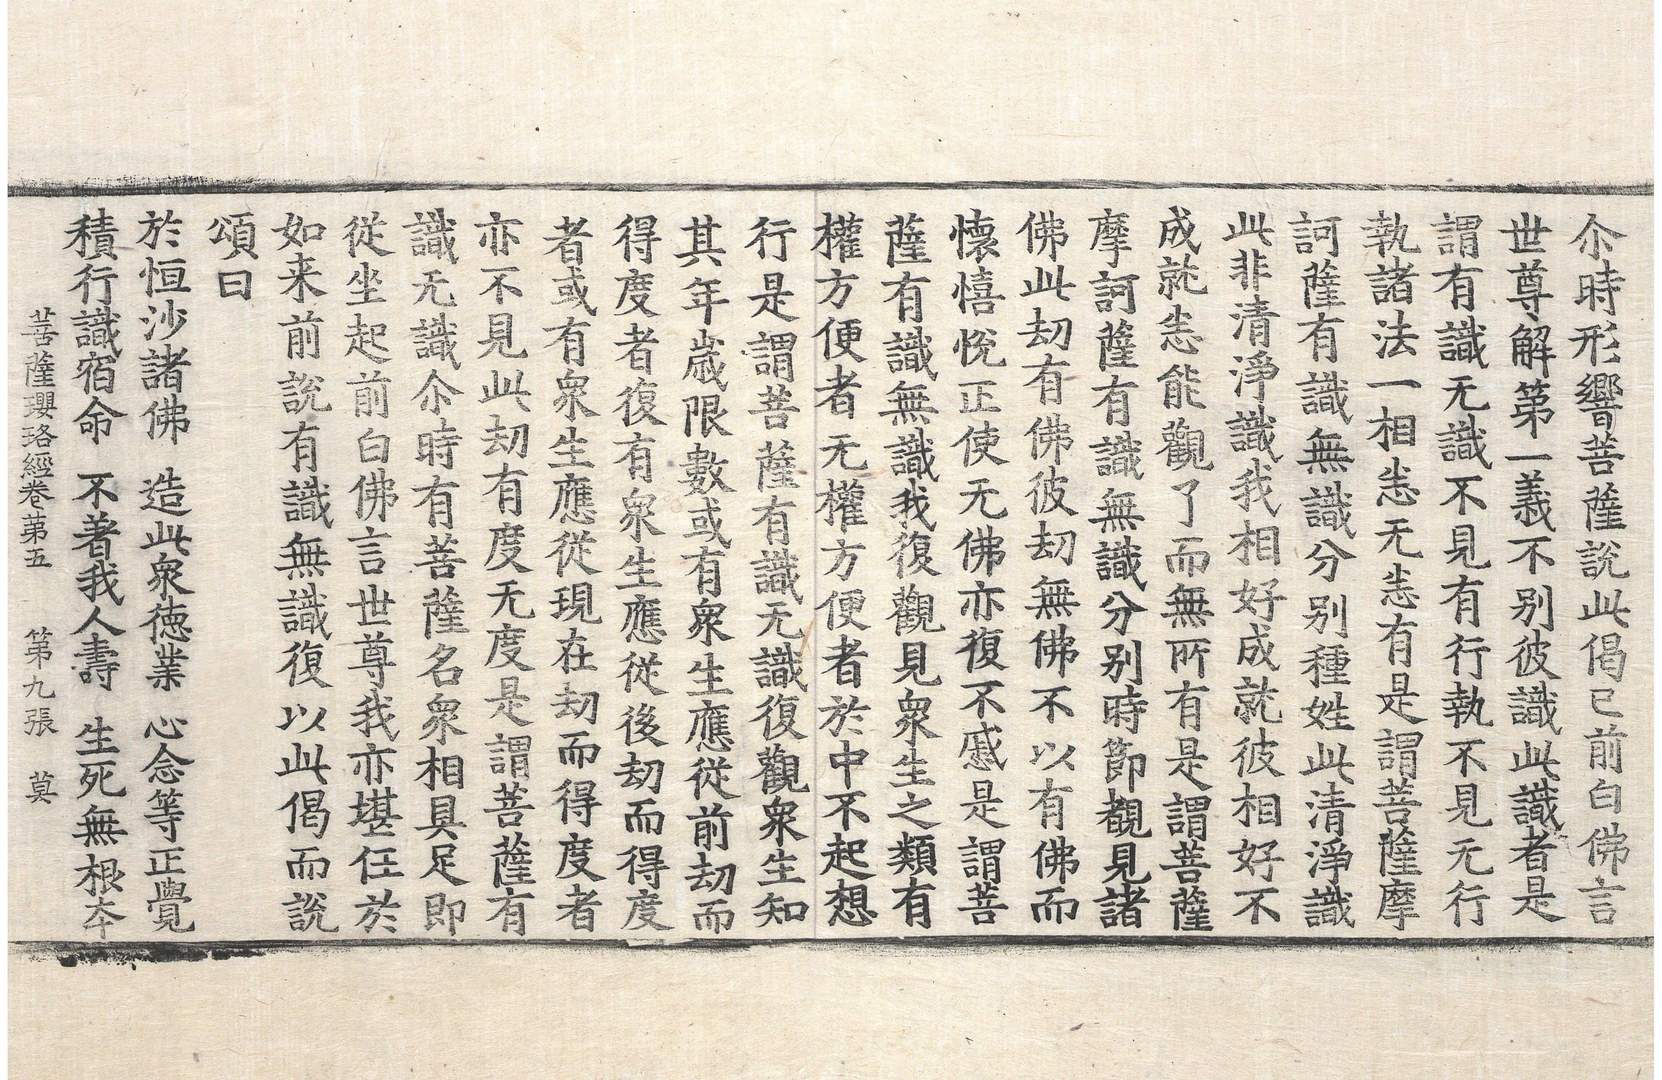 尒時形響菩薩說此偈已前白佛言
世尊解第一義不別彼識此識者是
謂有識无識不見有行執不見无行
執諸法一相恙无恙有是謂菩薩摩
訶薩有識無識分别種姓此清淨識
此非清淨識我相好成就彼相好不
成就恙能觀了而無所有是謂菩薩
摩訶薩有識無識分别時節觀見諸
佛此劫有佛彼劫無佛不以有佛而
懷憘悅正使无佛亦復不慼是謂菩
薩有識無識我復觀見衆生之類有
權方便者无權方便者於中不起想
行是謂菩薩有識无識復觀衆生知
其年歲限數或有衆生應從前劫而
得度者復有衆生應從後劫而得度
者或有衆生應從現在劫而得度者
亦不見此劫有度无度是謂菩薩有
識无識尒時有菩薩名衆相具足即
從坐起前白佛言世尊我亦堪任於
如来前說有識無識復以此偈而說
頌曰
於恒沙諸佛 造此衆德業 心念等正覺
積行識宿命 不著我人壽 生死無根夲
菩薩瓔珞經卷苐五 第九張 莫